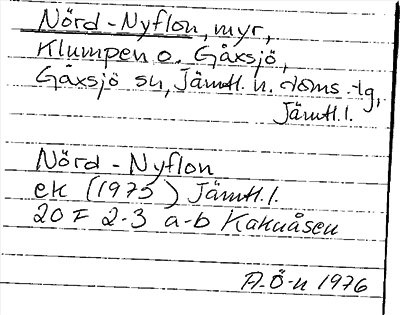 Nörd-Nyflon, myr,
Klumpen o. Gåxsjö,
Gåxsjö sn, Jämtl. n. doms.-lg,
Jämtl. l.
Nörd-Nyflon
ek (1975) Jämtl. l.
20 F 2-3 a-b Kakuåsen
A-Ö-n 1976